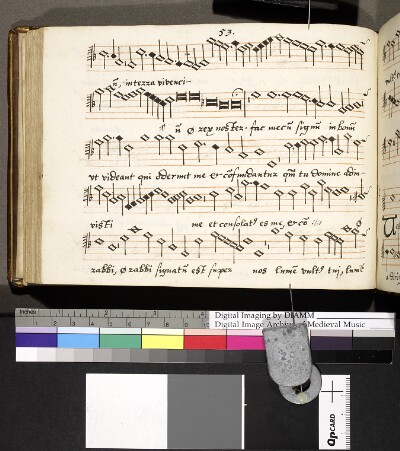 53.
n, in terra viventi-
n O rex noster. fac mecū signū in bonū
ut videant qui oderunt me et cōfundantur qm̄ tu domine adiu-
visti me et consolat9 es me, et cō :/:
rabbi, O rabbi signatū est super nos lumē vult9 tui, lumē
inches 1 2 3
Digital Imaging by DIAMM
Digital Image Archive of Medieval Music
QPCARD